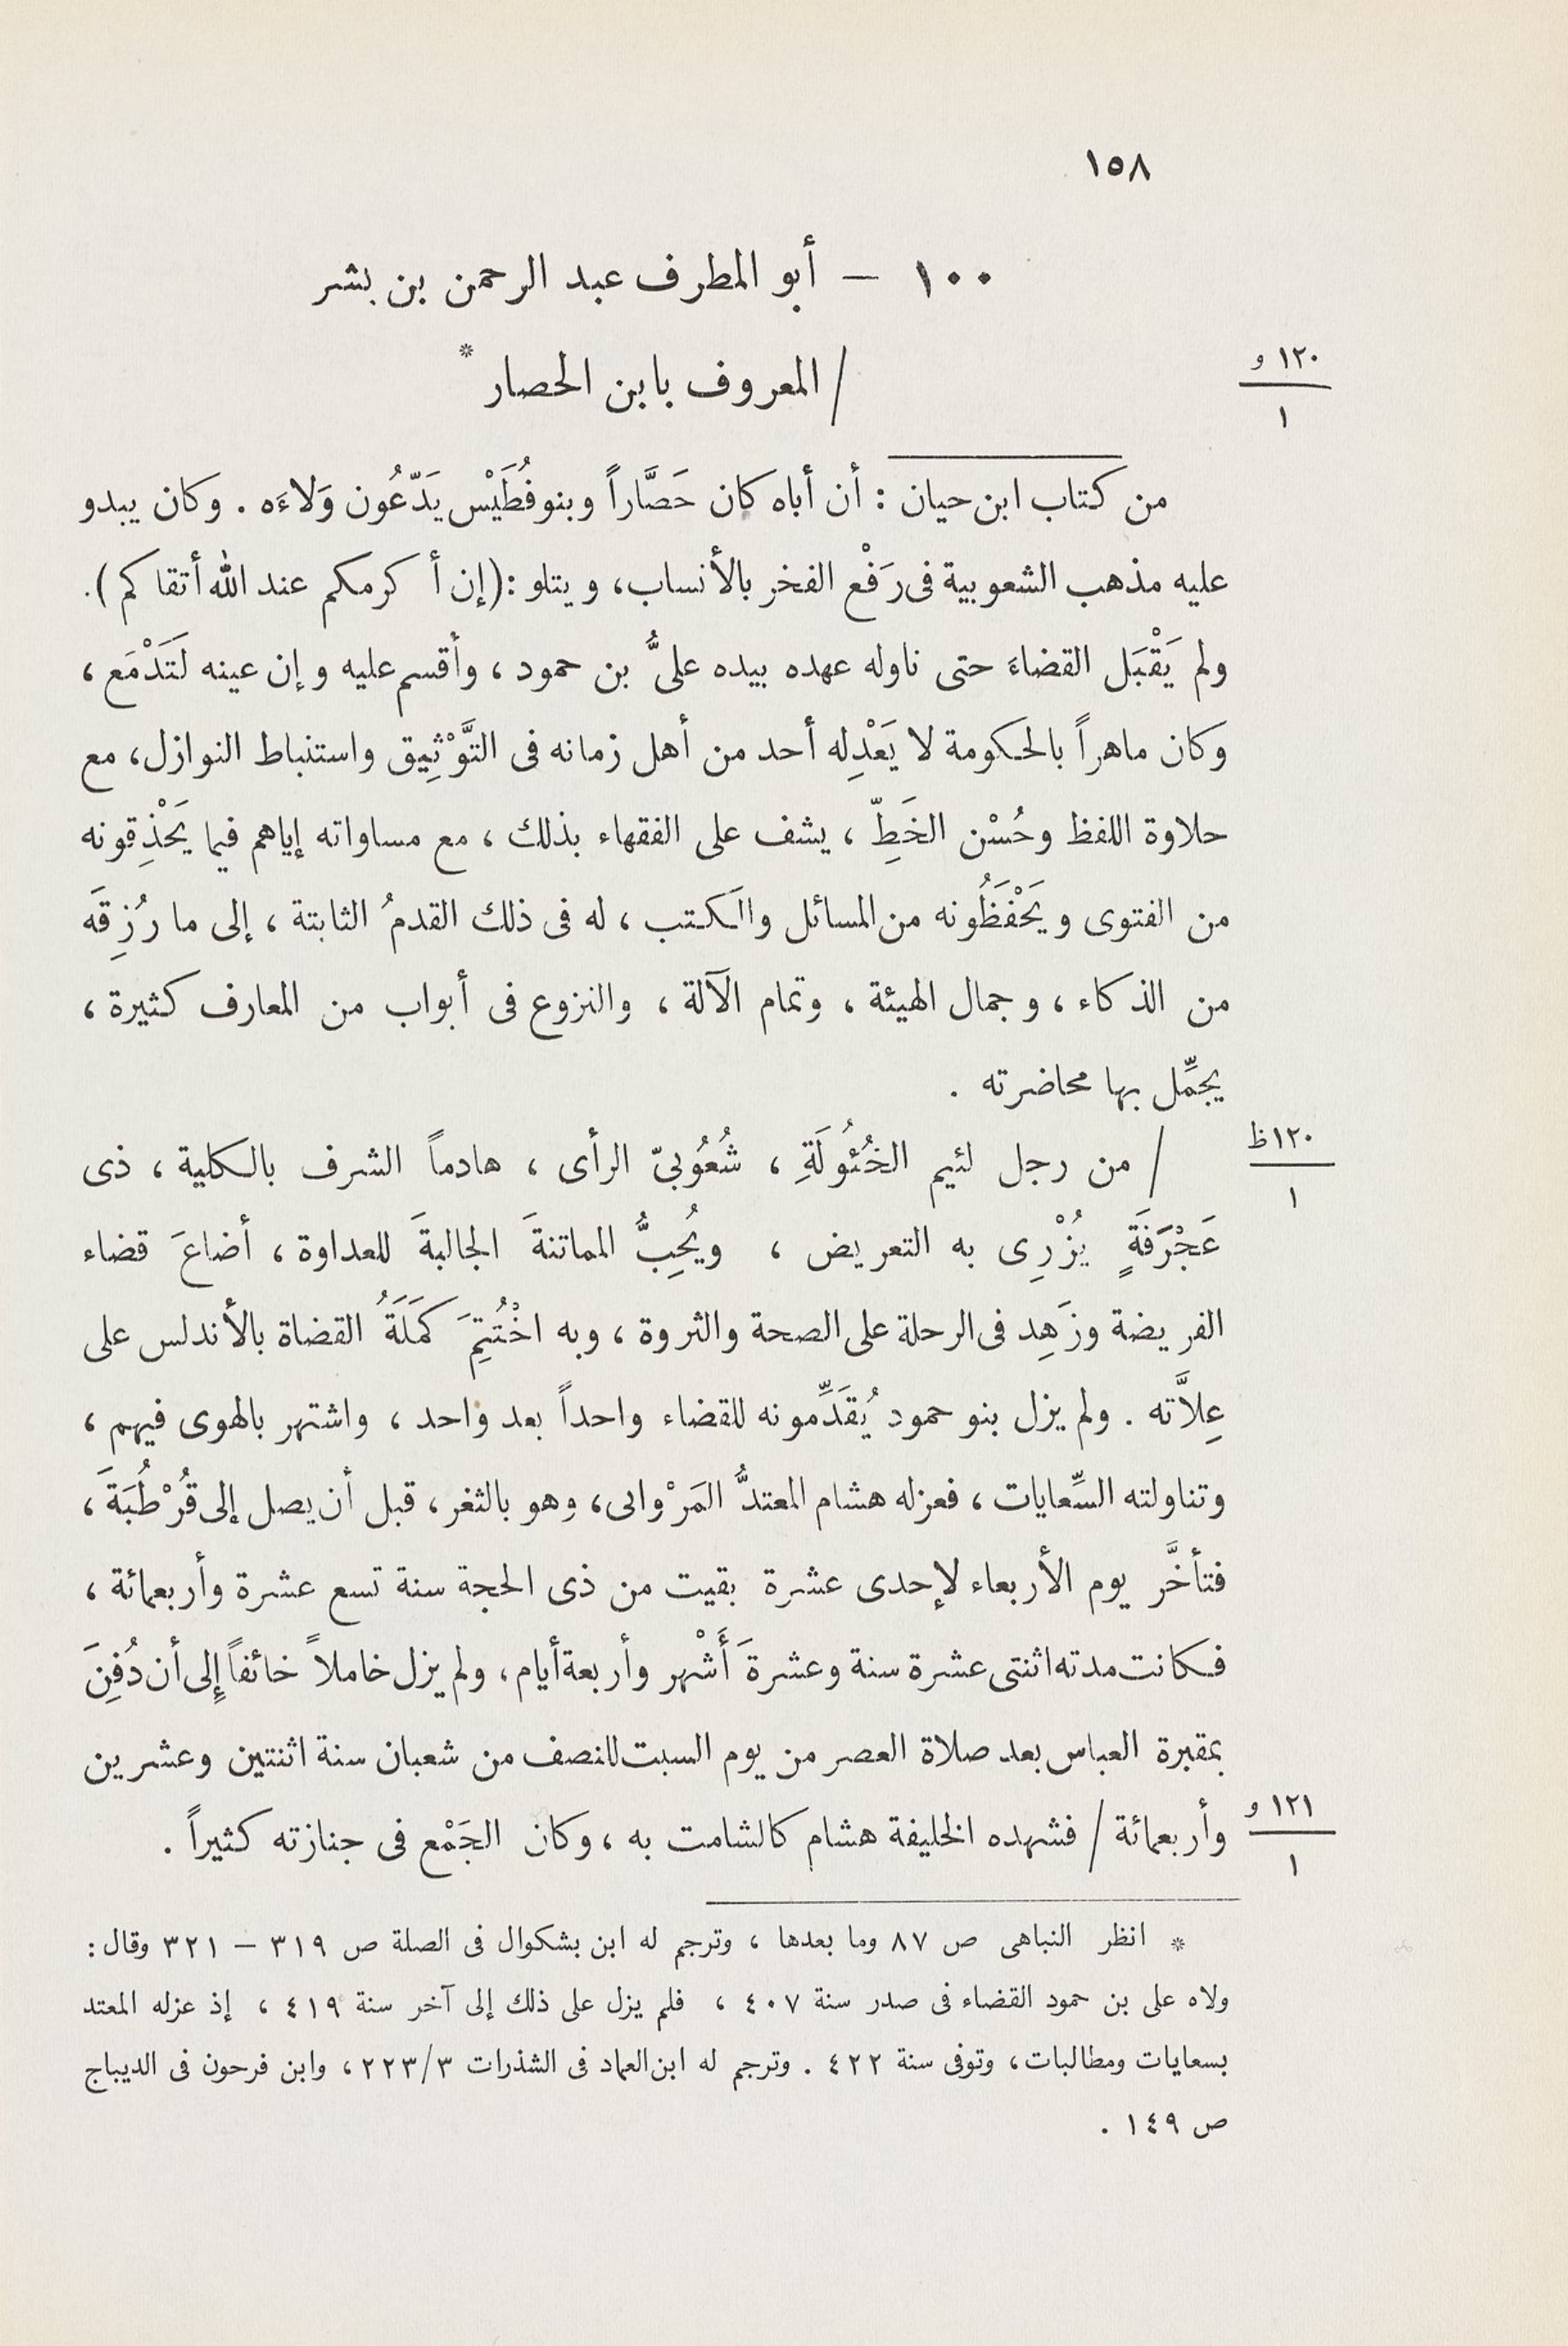 ١٥٨
١٠٠ — أبو المطرف عبد الرحمن بن بشر
/ المعروف بابن الحصار *
١٢٠ و
١
من كتاب ابن حيان : أن أباه كان حَصَّاراً وبنو فُطَيْس يَدّعُون وَلاءَه . وكان يبدو
عليه مذهب الشعوبية فى رَفْع الفخر بالأنساب، ويتلو : (إن أكرمكم عند الله أتقاكم) .
ولم يَقْبَل القضاءَ حتى ناوله عهده بيده علىُّ بن حمود ، وأقسم عليه وإن عينه لَتَدْمَع ،
وكان ماهراً بالحكومة لا يَعْدِله أحد من أهل زمانه فى التَّوْثِيق واستنباط النوازل، مع
حلاوة اللفظ وحُسْن الخَطِّ ، يشف على الفقهاء بذلك ، مع مساواته إياهم فيما يَحْذِقونه
من الفتوى ويَحْفَظُونه من المسائل والكتب ، له فى ذلك القدمُ الثابتة ، إلى ما رُزِقَه
من الذكاء ، وجمال الهيئة ، وتمام الآلة ، والنزوع فى أبواب من المعارف كثيرة ،
يجمِّل بها محاضرته .
١٢٠ ظ
١
/ من رجل لئيم الخُئُولَةِ ، شُعُوبىّ الرأى ، هادماً الشرف بالكلية ، ذى
عَجْرَفَةٍ يُزْرِى به التعريض ، ويُحِبُّ المماتنةَ الجالبةَ للعداوة ، أضاعَ قضاء
الفريضة وزَهِد فى الرحلة على الصحة والثروة ، وبه اخْتُتِمَ كَمَلَةُ القضاة بالأندلس على
عِلاَّته . ولم يزل بنو حمود يُقَدِّمونه للقضاء واحداً بعد واحد ، واشتهر بالهوى فيهم ،
وتناولته السِّعايات ، فعزله هشام المعتدُّ المَرْوانى، وهو بالثغر ، قبل أن يصل إلى قُرْطُبَةَ ،
فتأخَّر يوم الأربعاء لإحدى عشرة بقيت من ذى الحجة سنة تسع عشرة وأربعمائة ،
فكانت مدته اثنتى عشرة سنة وعشرةَ أَشْهر وأربعة أيام، ولم يزل خاملاً خائفاً إلى أن دُفِنَ
بمقبرة العباس بعد صلاة العصر من يوم السبت للنصف من شعبان سنة اثنتين وعشرين
١٢١ و
١
وأربعمائة / فشهده الخليفة هشام كالشامت به ، وكان الجَمْع فى جنازته كثيراً .
* انظر النباهى ص ٨٧ وما بعدها ، وترجم له ابن بشكوال فى الصلة ص ٣١٩ — ٣٢١ وقال :
ولاه على بن حمود القضاء فى صدر سنة ٤٠٧ ، فلم يزل على ذلك إلى آخر سنة ٤١٩ ، إذ عزله المعتد
بسعايات ومطالبات، وتوفى سنة ٤٢٢ . وترجم له ابن العماد فى الشذرات ٢٢٣/٣ ، وابن فرحون فى الديباج
ص ١٤٩ .